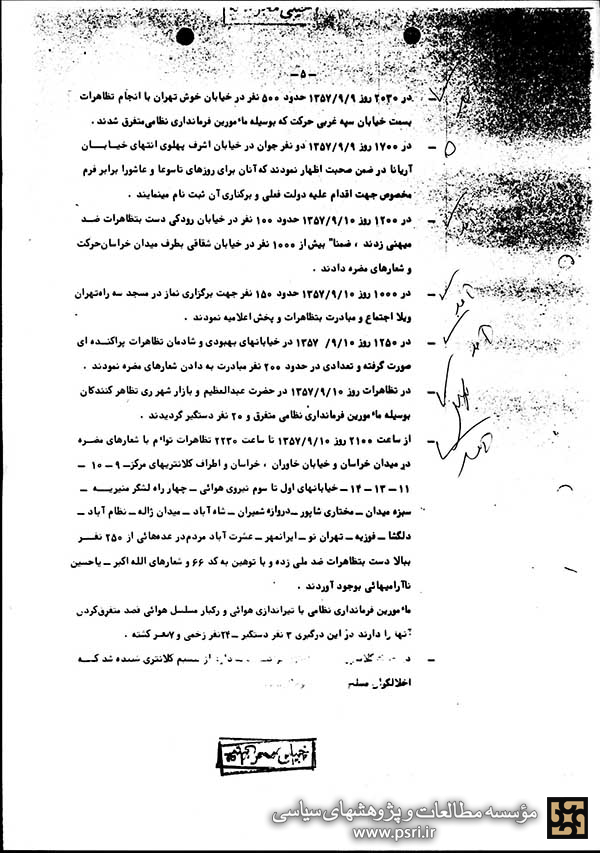 خیلی محرمانه
-۵-
- در ۲۰۳۰ روز ۱۳۵۷/۹/۹ حدود ۵۰۰ نفر در خیابان خوش تهران با انجام تظاهرات
بسمت خیابان سپه غربی حرکت که بوسیله مأمورین فرمانداری نظامی متفرق شدند .
- در ۱۷۰۰ روز ۱۳۵۷/۹/۹ دو نفر جوان در خیابان اشرف پهلوی انتهای خیابـــان
آریانا در ضمن صحبت اظهار نمودند که آنان برای روزهای تاسوعا و عاشورا برابر فرم
مخصوص جهت اقدام علیه دولت فعلی و برکناری آن ثبت نام مینمایند .
- در ۱۲۰۰ روز ۱۳۵۷/۹/۱۰ حدود ۱۰۰ نفر در خیابان رودکی دست بتظاهرات ضـد
میهنی زدند ، ضمنا" بیش از ۱۰۰۰ نفر در خیابان شقاقی بطرف میدان خراسان حرکت
و شعارهای مضره دادند .
- در ۱۰۰۰ روز ۱۳۵۷/۹/۱۰ حدود ۱۵۰ نفر جهت برگزاری نماز در مسجد سه راه تهران
ویلا اجتماع و مبادرت بتظاهرات و پخش اعلامیه نمودند .
- در ۱۲۵۰ روز ۹/۱۰/ ۱۳۵۷ در خیابانهای بهبودی و شادمان تظاهرات پراکنده ای
صورت گرفته و تعدادی در حدود ۲۰۰ نفر مبادرت به دادن شعارهای مضره نمودند .
- در تظاهرات روز ۱۳۵۷/۹/۱۰ در حضرت عبدالعظیم و بازار شهر ری تظاهر کنندگان
بوسیله مأمورین فرمانداری نظامی متفرق و ۲۰ نفر دستگیر گردیدند .
- از ساعت ۲۱۰۰ روز ۱۳۵۷/۹/۱۰ تا ساعت ۲۲۳۰ تظاهرات توأم با شعارهای مضـره
در میدان خراسان و خیابان خاوران ، خراسان و اطراف کلانتریهای مرکز- ۹ - ۱۰ -
۱۱ - ۱۳ - ۱۴ - خیابانهای اول تا سوم نیروی هوائی - چهار راه لشگر منیریــه -
سبزه میدان - مختاری شاپور - دروازه شمیران - شاه آباد - میدان ژاله - نظام آباد -
دلگشا - فوزیه - تهران نو - ایرانمهر - عشرت آباد مردم در عده هائی از ۲۵۰ نفــر
ببالا دست بتظاهرات ضد ملی زده و با توهین به کد ۶۶ و شعارهای الله اکبر - یاحسین
ناآرامیهائی بوجود آوردند .
مأمورین فرمانداری نظامی با تیراندازی هوائی و رگبار مسلسل هوائی قصد متفرق کردن
آنها را دارند در این درگیری ۳ نفر دستگیر - ۲۴ نفر زخمی و ۷ نفر کشته .
- از بیسیم کلانتری شنیده شد کـــه
اخلالگران مسلح
خیلی محرمانه
مؤسسه مطالعات و پژوهشهای سیاسی
www.psri.ir